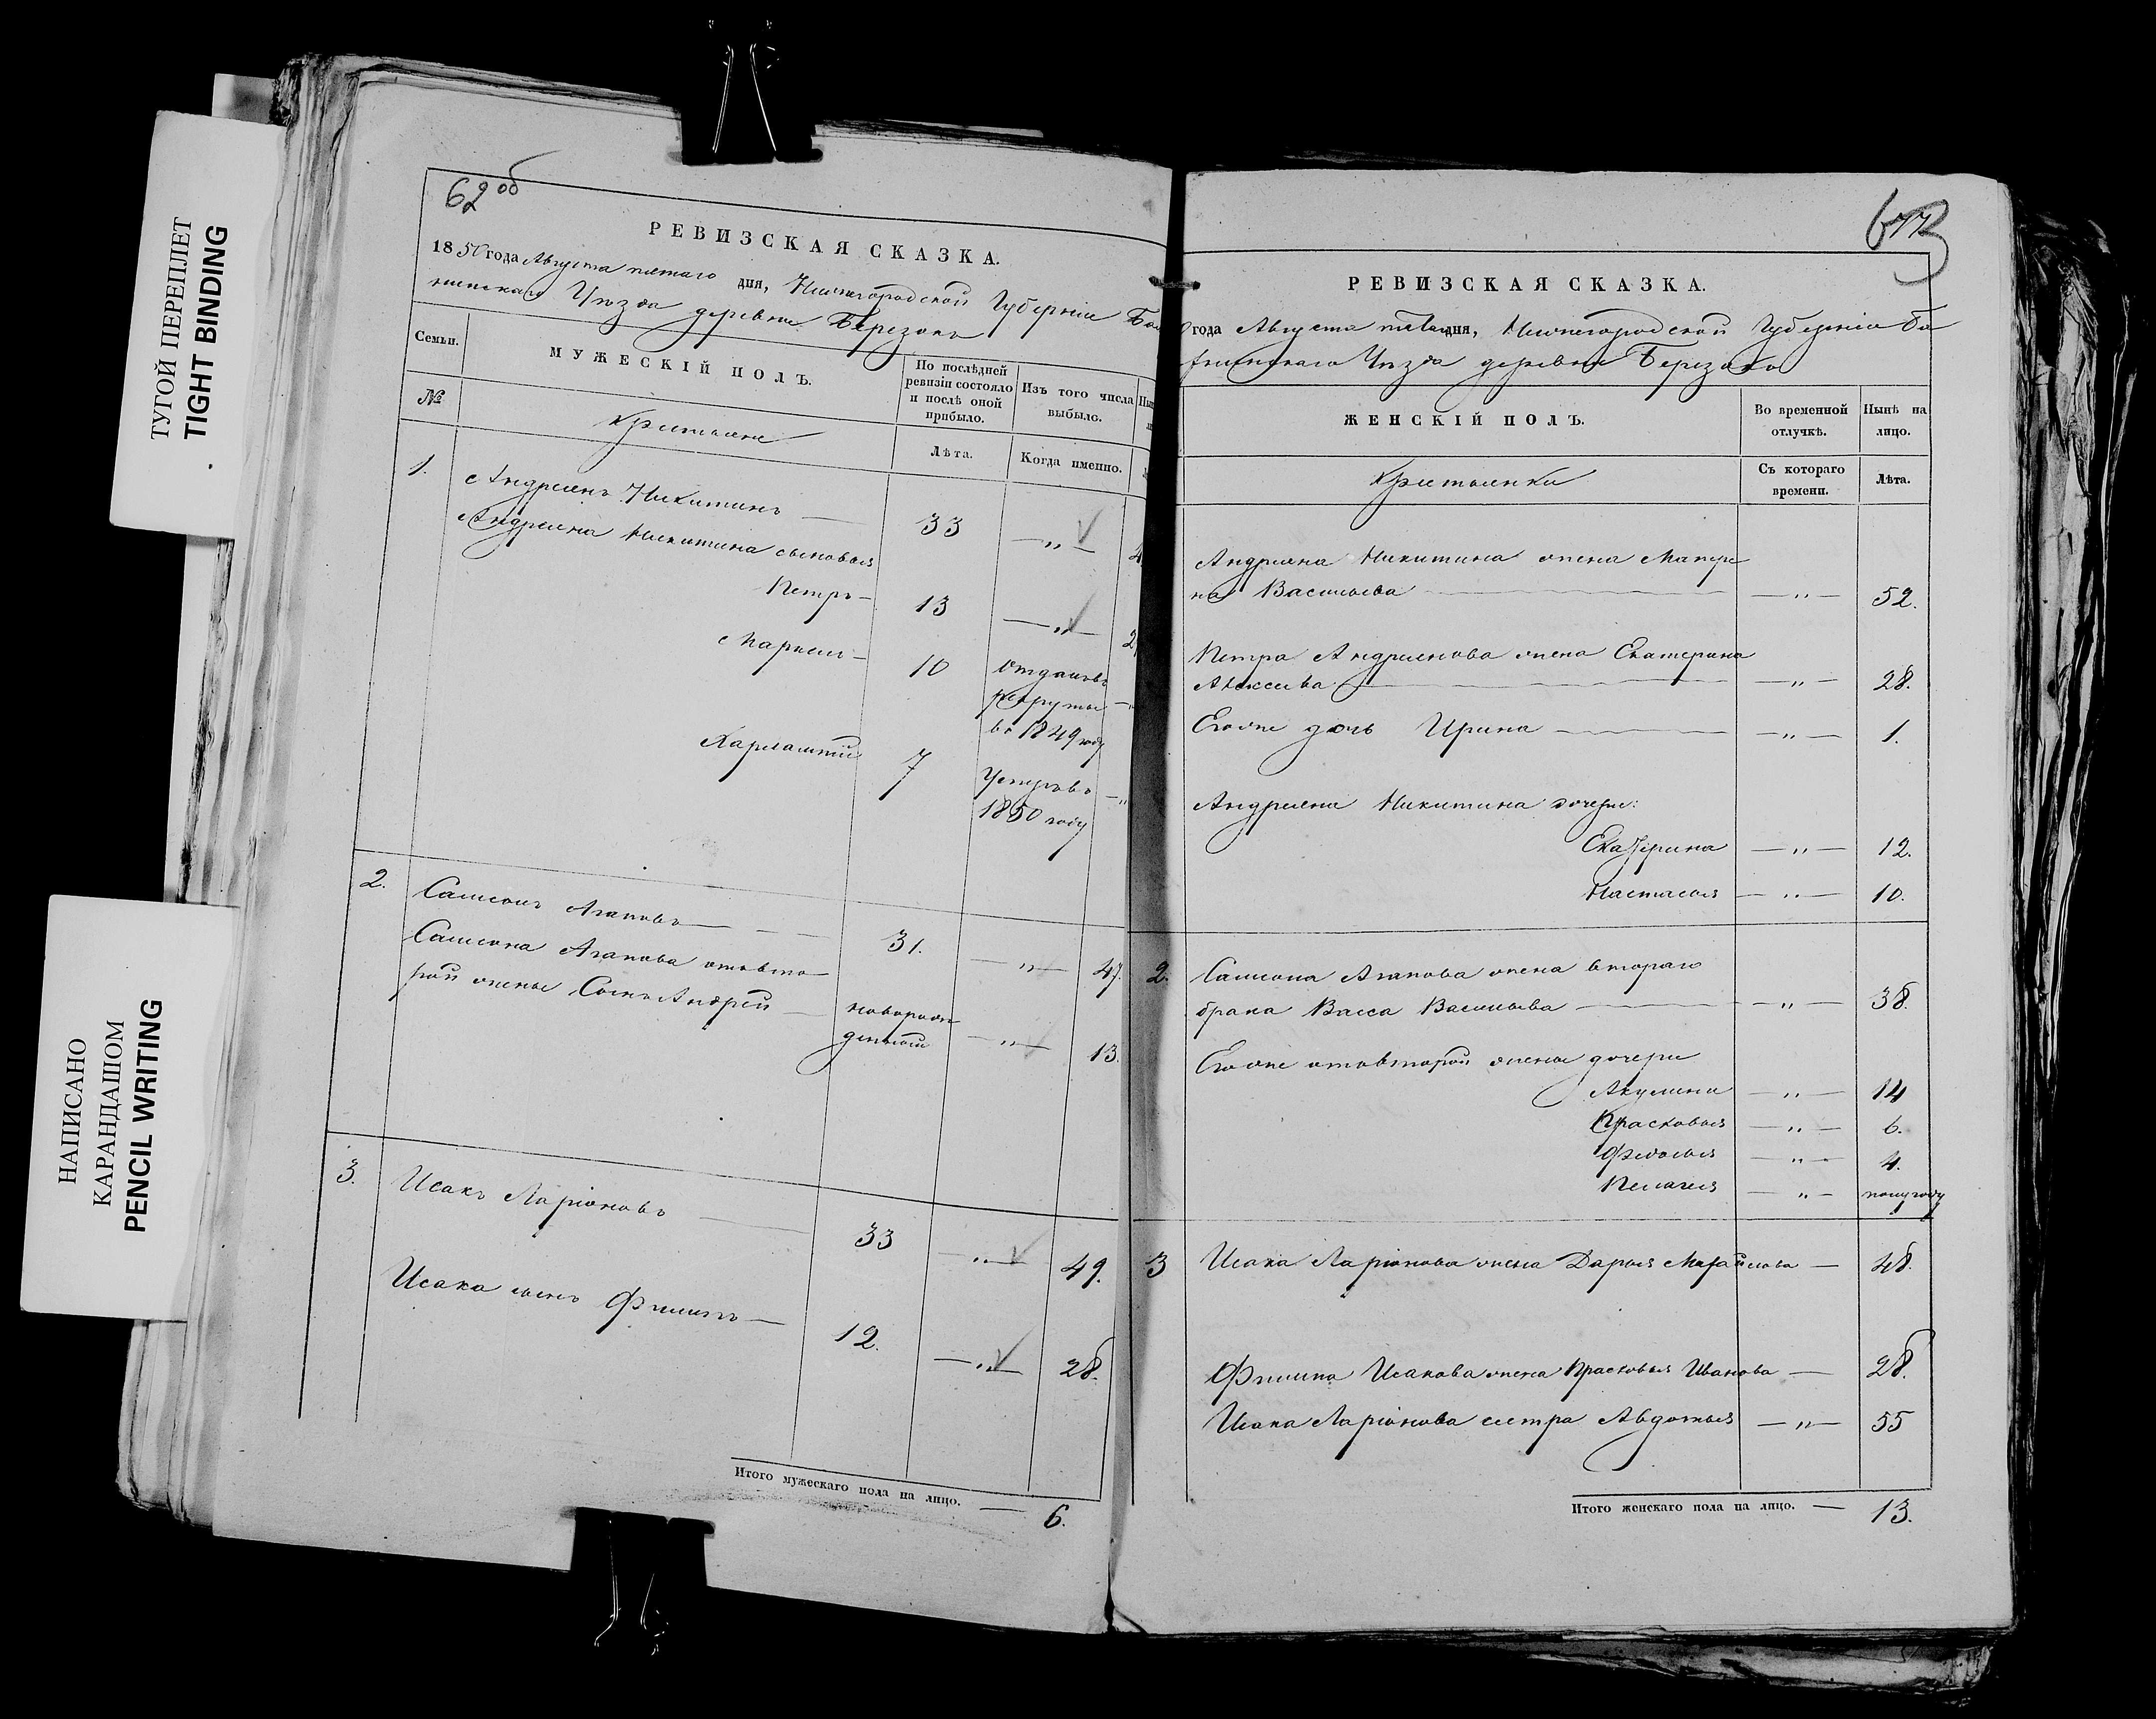 ТУГОЙ ПЕРЕПЛЕТ
TIGHT BINDING
НАПИСАНО
КАРАНДАШОМ
PENCIL WRITING
62 об
РЕВИЗСКАЯ СКАЗКА.
1850 года Августа пятаго дня, Нижегородской Губерніи Ба
Уѣзда деревни Березокъ
Семьи.
МУЖЕСКІЙ ПОЛЪ.
По послѣдней
ревизіи состояло
и послѣ оной
прибыло.
Изъ того числа
выбыло.
№
Крестьяне
Лѣта.
Когда именно.
1.
Андреянъ Никитинъ — 33 — „ —
Андреяна Никитина сыновья
Петръ — 13 — „ —
10 отданъ въ
рекруты
въ 1849 году
7 Умеръ въ
1850 году
2.
Самсонъ Агаповъ — 31. — „ — 47.
Самсона Агапова отъ вто
рой жены Сынъ Андрей — новорож
денный — „ — 13.
3.
Исакъ Ларіоновъ — 33 — „ — 49.
Исака сынъ Филипъ — 12. — „ — 28.
Итого мужескаго пола на лицо. — 6.
РЕВИЗСКАЯ СКАЗКА.
года Августа дня, Нижегородской Губерніи Ба
Уѣзда деревни Березокъ
ЖЕНСКІЙ ПОЛЪ.
Во временной
отлучкѣ.
Нынѣ на
лицо.
Крестьянки
Съ котораго
времени.
Лѣта.
Андреяна Никитина жена Матре
на Васильева — „ — 52.
Петра Андреянова жена Екатерина
Алексеева — „ — 28.
Его же дочь Ирина — „ — 1.
Андреяна Никитина дочери:
Екатерина — „ — 12.
Настасья — „ — 10.
2. Самсона Агапова жена втораго
брака Васса Васильева — „ — 38.
Его же отъ второй жены дочери
Акулина — „ — 14
Прасковья — „ — 6.
Федосья — „ — 4.
Пелагея — „ — полугоду
3 Исака Ларіонова жена Дарья Михайлова — 48.
Филипа Исакова жена Прасковья Иванова — 28.
Исака Ларіонова сестра Авдотья — „ — 55
Итого женскаго пола на лицо. — 13.